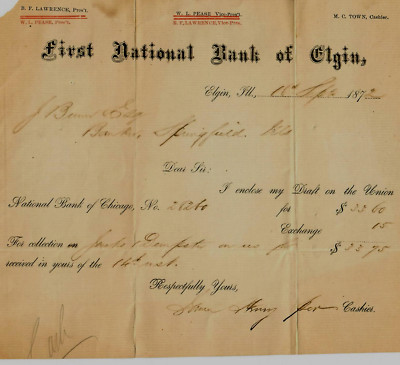 B. F. LAWRENCE, Pres't.
W. L. PEASE, Pres't.
W. L. PEASE, Vice-Pres't.
B. F. LAWRENCE, Vice-Pres't.
M. C. TOWN, Cashier.
First National Bank of Elgin,
Elgin, Ill., Sept 1872
J Bunn Esq
Banker, Springfield. Ills
Dear Sir:
I enclose my Draft on the Union
National Bank of Chicago, No. for $ 22 60
Exchange 15
For collection on on us for $ 22 75
received in yours of the 14th inst.
Respectfully Yours,
Cashier.